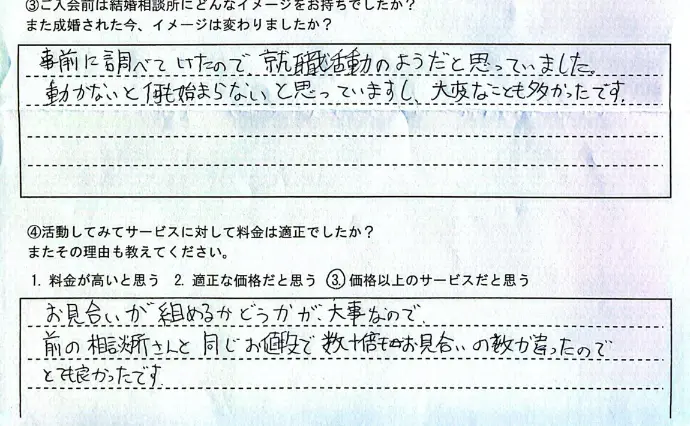 ③ご入会前は結婚相談所にどんなイメージをお持ちでしたか?
また成婚された今、イメージは変わりましたか?
事前に調べていたので、就職活動のようだと思っていました。
動かないと何も始まらないと思っていますし、大変なことも多かったです。
④活動してみてサービスに対して料金は適正でしたか?
またその理由も教えてください。
1. 料金が高いと思う 2. 適正な価格だと思う ③価格以上のサービスだと思う
お見合いが組めるかどうかが、大事なので、
前の相談所さんと同じお値段で数十倍もお見合いの数が違ったので
とても良かったです。